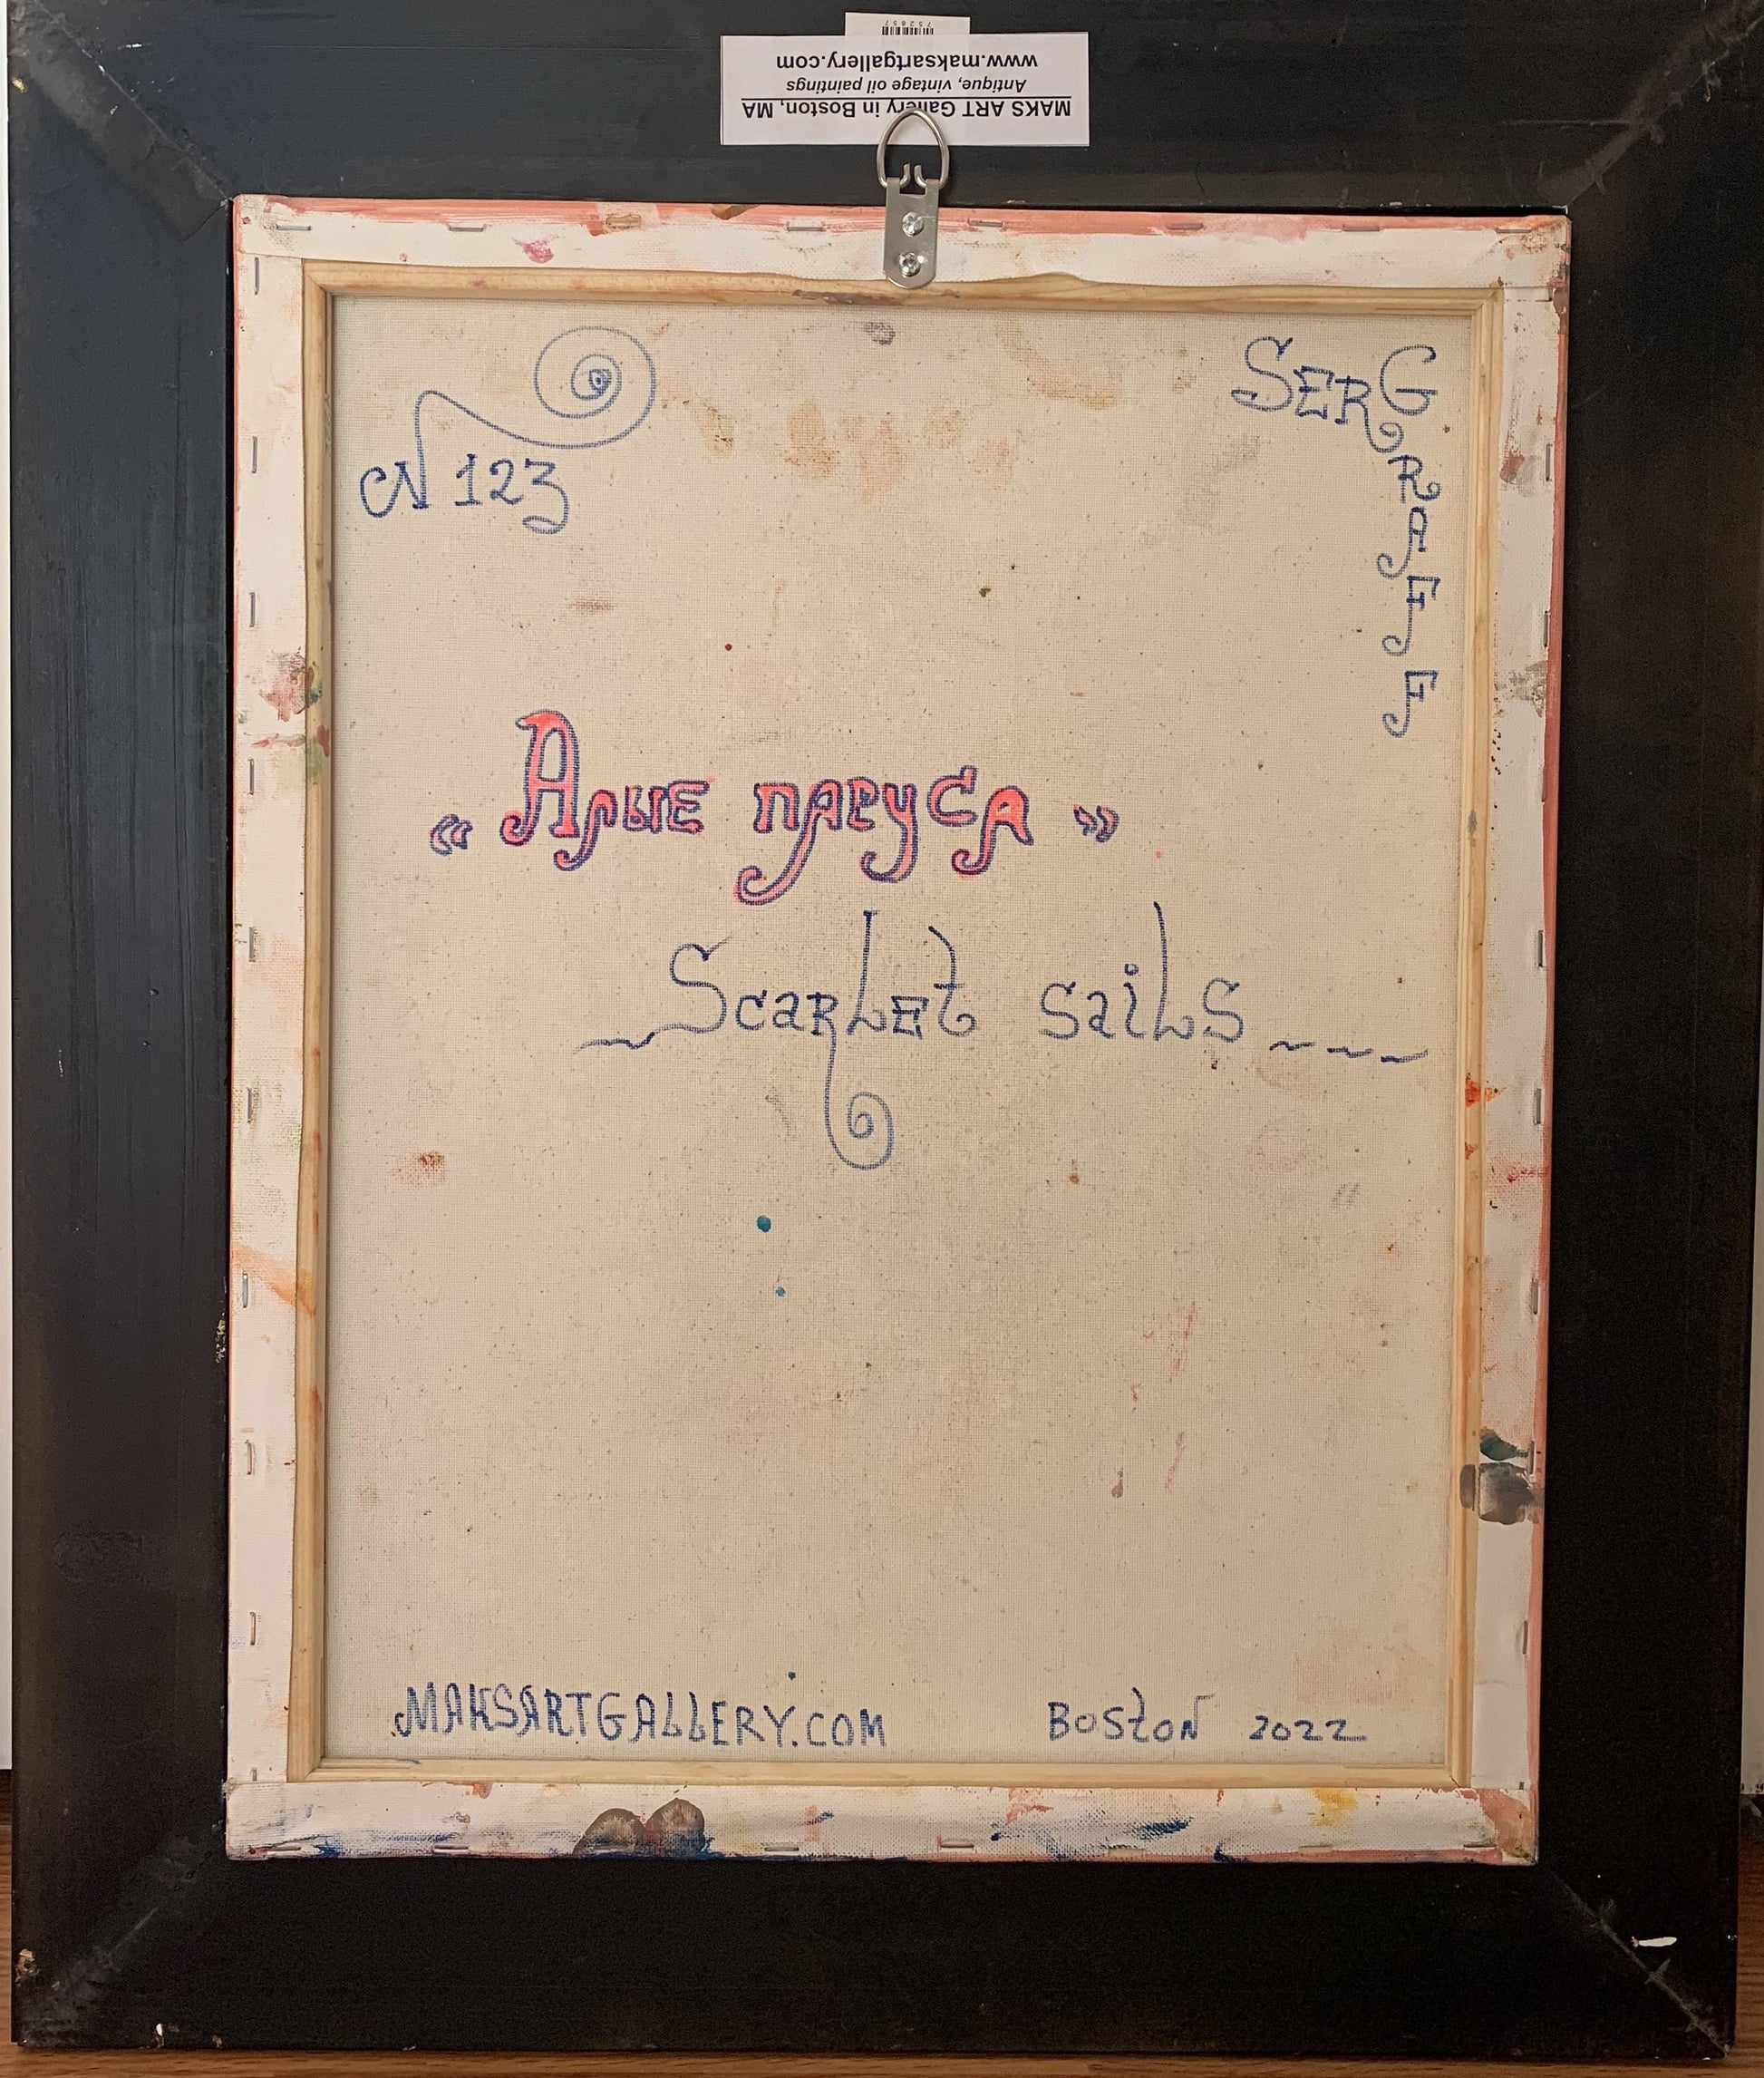 752857
www.maksartgallery.com
Antique, vintage oil paintings
MAKS ART Gallery in Boston, MA
N 123
SERGRAFF
« Алые паруса »
Scarlet sails
MAKSARTGALLERY.COM
Boston 2022